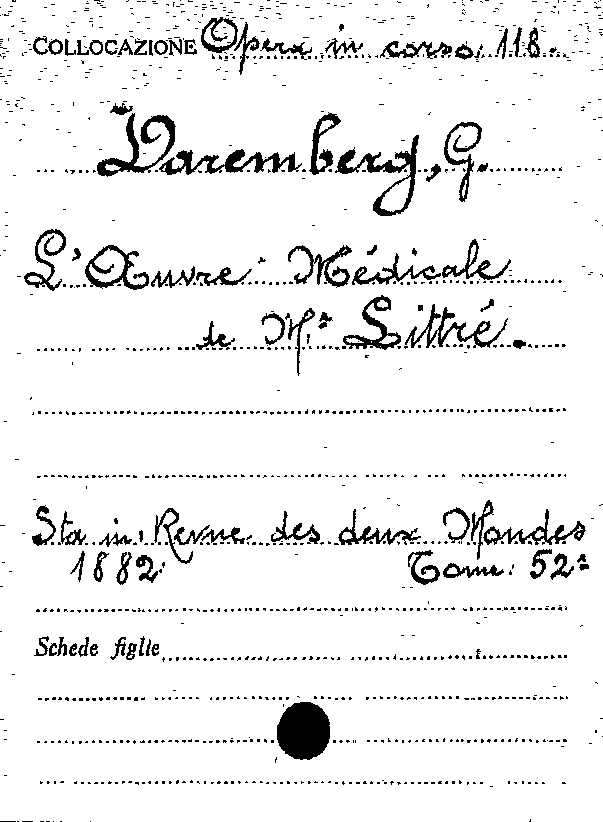 COLLOCAZIONE Opera in corso, 118.
Daremberg, G.
L'Œuvre Médicale
de Mr Littré.
Sta in, Revue des deux Mondes
1882. Tome: 52e
Schede figlie